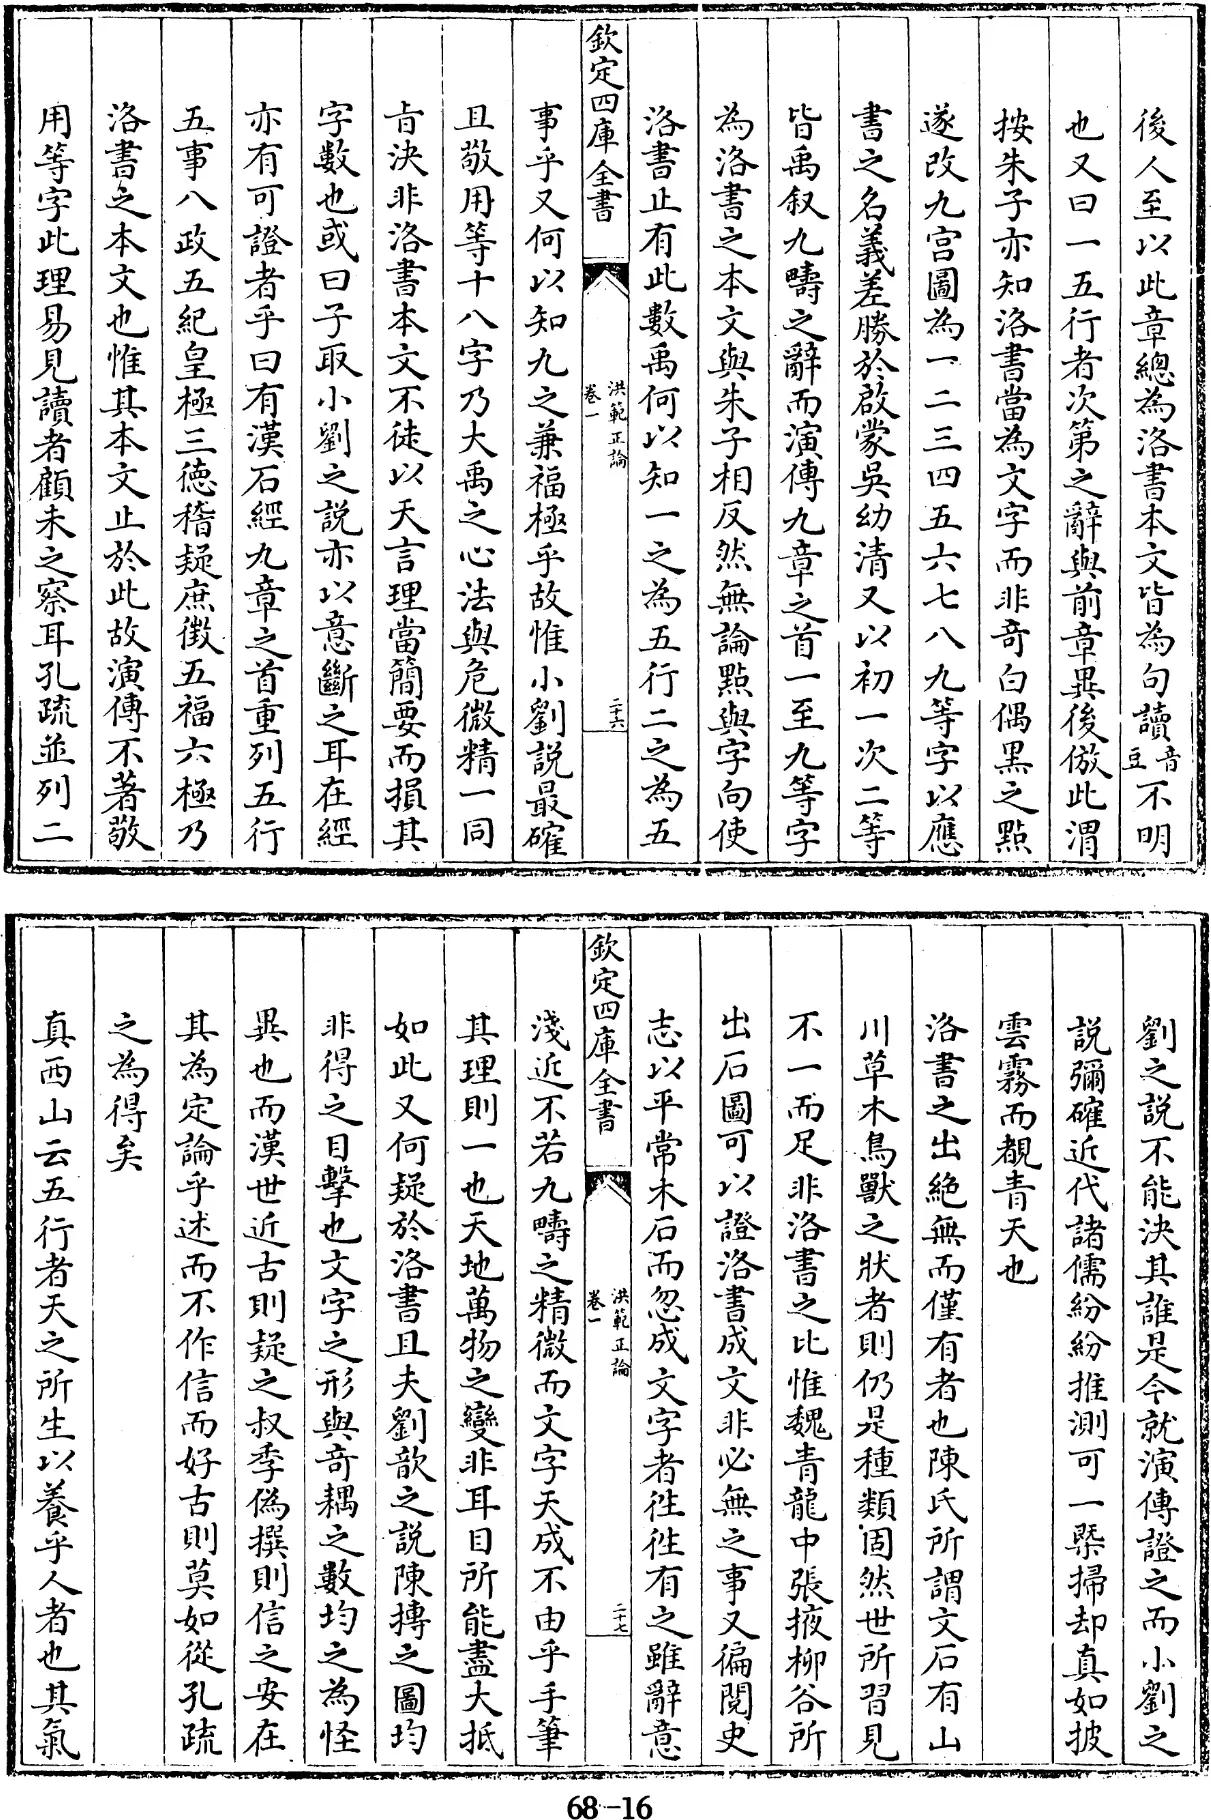 後人至以此章總為洛書本文皆為句讀音豆不明
也又曰一五行者次第之辭與前章異後倣此謂
按朱子亦知洛書當為文字而非奇白偶黑之點
遂改九宮圖為一二三四五六七八九等字以應
書之名義差勝於啟蒙吳幼清又以初一次二等
皆禹叙九疇之辭而演傳九章之首一至九等字
為洛書之本文與朱子相反然無論點與字向使
洛書止有此數禹何以知一之為五行二之為五
欽定四庫全書
洪範正論
卷一
二十六
事乎又何以知九之兼福極乎故惟小劉說最確
且敬用等十八字乃大禹之心法與危微精一同
㫖決非洛書本文不徒以天言理當簡要而損其
字數也或曰子取小劉之說亦以意斷之耳在經
亦有可證者乎曰有漢石經九章之首重列五行
五事八政五紀皇極三德稽疑庶徵五福六極乃
洛書之本文也惟其本文止於此故演傳不著敬
用等字此理易見讀者顧未之察耳孔疏並列二
劉之說不能決其誰是今就演傳證之而小劉之
說彌確近代諸儒紛紛推測可一槩掃却真如披
雲霧而覩青天也
洛書之出絶無而僅有者也陳氏所謂文石有山
川草木鳥獸之狀者則仍是種類固然世所習見
不一而足非洛書之比惟魏青龍中張掖柳谷所
出石圖可以證洛書成文非必無之事又徧閱史
志以平常木石而忽成文字者徃徃有之雖辭意
欽定四庫全書
洪範正論
卷一
二十七
淺近不若九疇之精微而文字天成不由乎手筆
其理則一也天地萬物之變非耳目所能盡大抵
如此又何疑於洛書且夫劉歆之說陳摶之圖均
非得之目擊也文字之形與奇耦之數均之為怪
異也而漢世近古則疑之叔季偽撰則信之安在
其為定論乎述而不作信而好古則莫如從孔疏
之為得矣
真西山云五行者天之所生以養乎人者也其氣
68-16